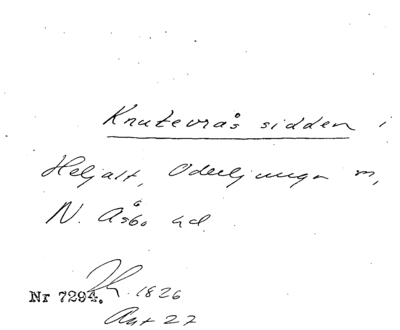 Knutevrås sidden i
Heljalt, Oderljunga m,
N. Åsbo hd.
Nr 7294. 1826
Art 27